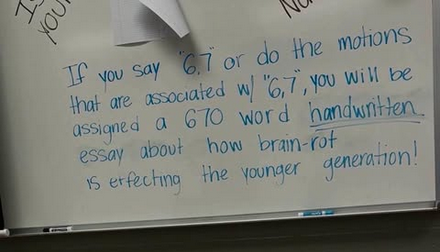 IS
YOUR
If you say "6,7" or do the motions
that are associated w/ "6,7", you will be
assigned a 670 word handwritten
essay about how brain-rot
is erfecting the younger generation!